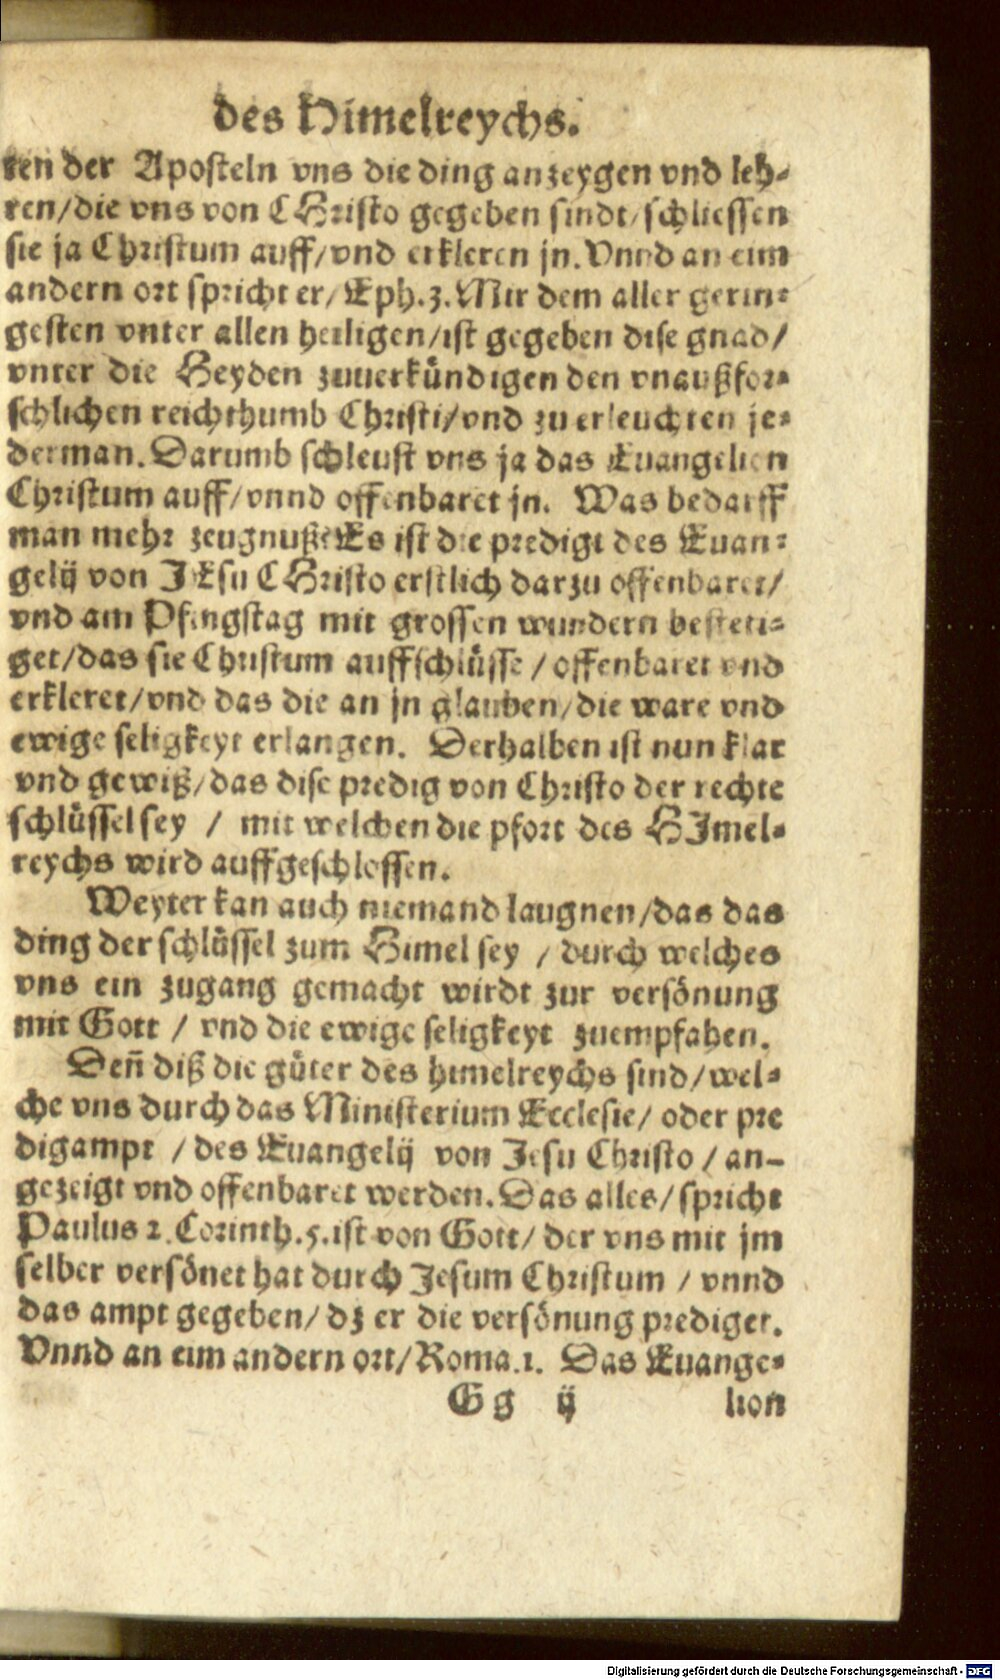 des Himelreychs.
ten der Aposteln vns die ding anzeygen vnd leh-
ren/die vns von CHristo gegeben sindt/schliessen
sie ja Christum auff/vnd erkleren jn. Vnnd an eim
andern ort spricht er/ Eph.3. Mir dem aller gerin-
gesten vnter allen heiligen/ist gegeben dise gnad/
vnter die Heyden zuuerkündigen den vnaußfor-
schlichen reichthumb Christi/vnd zu erleuchten je-
derman. Darumb schleust vns ja das Euangelion
Christum auff/vnnd offenbaret jn. Was bedarff
man mehr zeugnuß? Es ist die predigt des Euan-
gelij von JEsu CHristo erstlich darzu offenbaret/
vnd am Pfingstag mit grossen wundern besteti-
get/das sie Christum auffschlüsse / offenbaret vnd
erkleret/vnd das die an jn glauben/die ware vnd
ewige seligkeyt erlangen. Derhalben ist nun klar
vnd gewiß/das dise predig von Christo der rechte
schlüssel sey / mit welchen die pfort des HJmel-
reychs wird auffgeschlossen.
Weyter kan auch niemand laugnen/das das
ding der schlüssel zum Himel sey / durch welches
vns ein zugang gemacht wirdt zur versönung
mit Gott / vnd die ewige seligkeyt zuempfahen.
Deñ diß die güter des himelreychs sind/wel-
che vns durch das Ministerium Ecclesie/ oder pre
digampt /des Euangelij von Jesu Christo / an-
gezeigt vnd offenbaret werden. Das alles/spricht
Paulus 2. Corinth.5. ist von Gott/ der vns mit jm
selber versönet hat durch Jesum Christum / vnnd
das ampt gegeben/ dz er die versönung prediget.
Vnnd an eim andern ort/Roma.1. Das Euange-
Gg ij lion
Digitalisierung gefördert durch die Deutsche Forschungsgemeinschaft - DFG